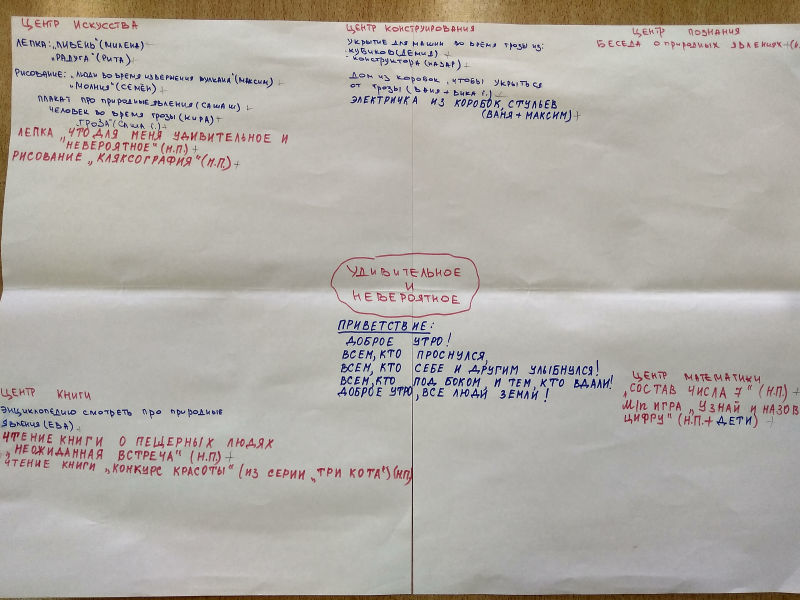 ЦЕНТР ИСКУССТВА
ЛЕПКА: „ЛИВЕНЬ" (МИЛЕНА) +
„РАДУГА" (РИТА)
РИСОВАНИЕ: „ЛЮДИ ВО ВРЕМЯ ИЗВЕРЖЕНИЯ ВУЛКАНА" (МАКСИМ)
„МОЛНИЯ" (СЕМЁН)
ПЛАКАТ ПРО ПРИРОДНЫЕ ЯВЛЕНИЯ (САША Ш) +
ЧЕЛОВЕК ВО ВРЕМЯ ГРОЗЫ (КИРА) +
ГРОЗА (САША Г.) +
ЛЕПКА „ЧТО ДЛЯ МЕНЯ УДИВИТЕЛЬНОЕ И
НЕВЕРОЯТНОЕ" (Н.П.) +
РИСОВАНИЕ „КЛЯКСОГРАФИЯ" (Н.П.) +
ЦЕНТР КОНСТРУИРОВАНИЯ
УКРЫТИЕ ДЛЯ МАШИН ВО ВРЕМЯ ГРОЗЫ ИЗ:
· КУБИКОВ (ДЕМИД) +
· КОНСТРУКТОРА (НАЗАР) +
ДОМ ИЗ КОРОБОК, ЧТОБЫ УКРЫТЬСЯ
ОТ ГРОЗЫ (ВАНЯ + ВИКА Г.) +
ЭЛЕКТРИЧКА ИЗ КОРОБОК, СТУЛЬЕВ
(ВАНЯ + МАКСИМ) +
ЦЕНТР ПОЗНАНИЯ
БЕСЕДА О ПРИРОДНЫХ ЯВЛЕНИЯХ +
УДИВИТЕЛЬНОЕ
И
НЕВЕРОЯТНОЕ
ПРИВЕТСТВИЕ:
ДОБРОЕ УТРО!
ВСЕМ, КТО ПРОСНУЛСЯ,
ВСЕМ, КТО СЕБЕ И ДРУГИМ УЛЫБНУЛСЯ!
ВСЕМ, КТО ПОД БОКОМ И ТЕМ, КТО ВДАЛИ!
ДОБРОЕ УТРО, ВСЕ ЛЮДИ ЗЕМЛИ!
ЦЕНТР КНИГИ
ЭНЦИКЛОПЕДИЮ СМОТРЕТЬ ПРО ПРИРОДНЫЕ
ЯВЛЕНИЯ (ЕВА) +
ЧТЕНИЕ КНИГИ О ПЕЩЕРНЫХ ЛЮДЯХ
„НЕОЖИДАННАЯ ВСТРЕЧА" (Н.П.) +
ЧТЕНИЕ КНИГИ „КОНКУРС КРАСОТЫ" (ИЗ СЕРИИ „ТРИ КОТА") (Н.П)
ЦЕНТР МАТЕМАТИКИ
„СОСТАВ ЧИСЛА 7" (Н.П.) +
М/П ИГРА „УЗНАЙ И НАЗОВ
ЦИФРУ" (Н.П. + ДЕТИ) +